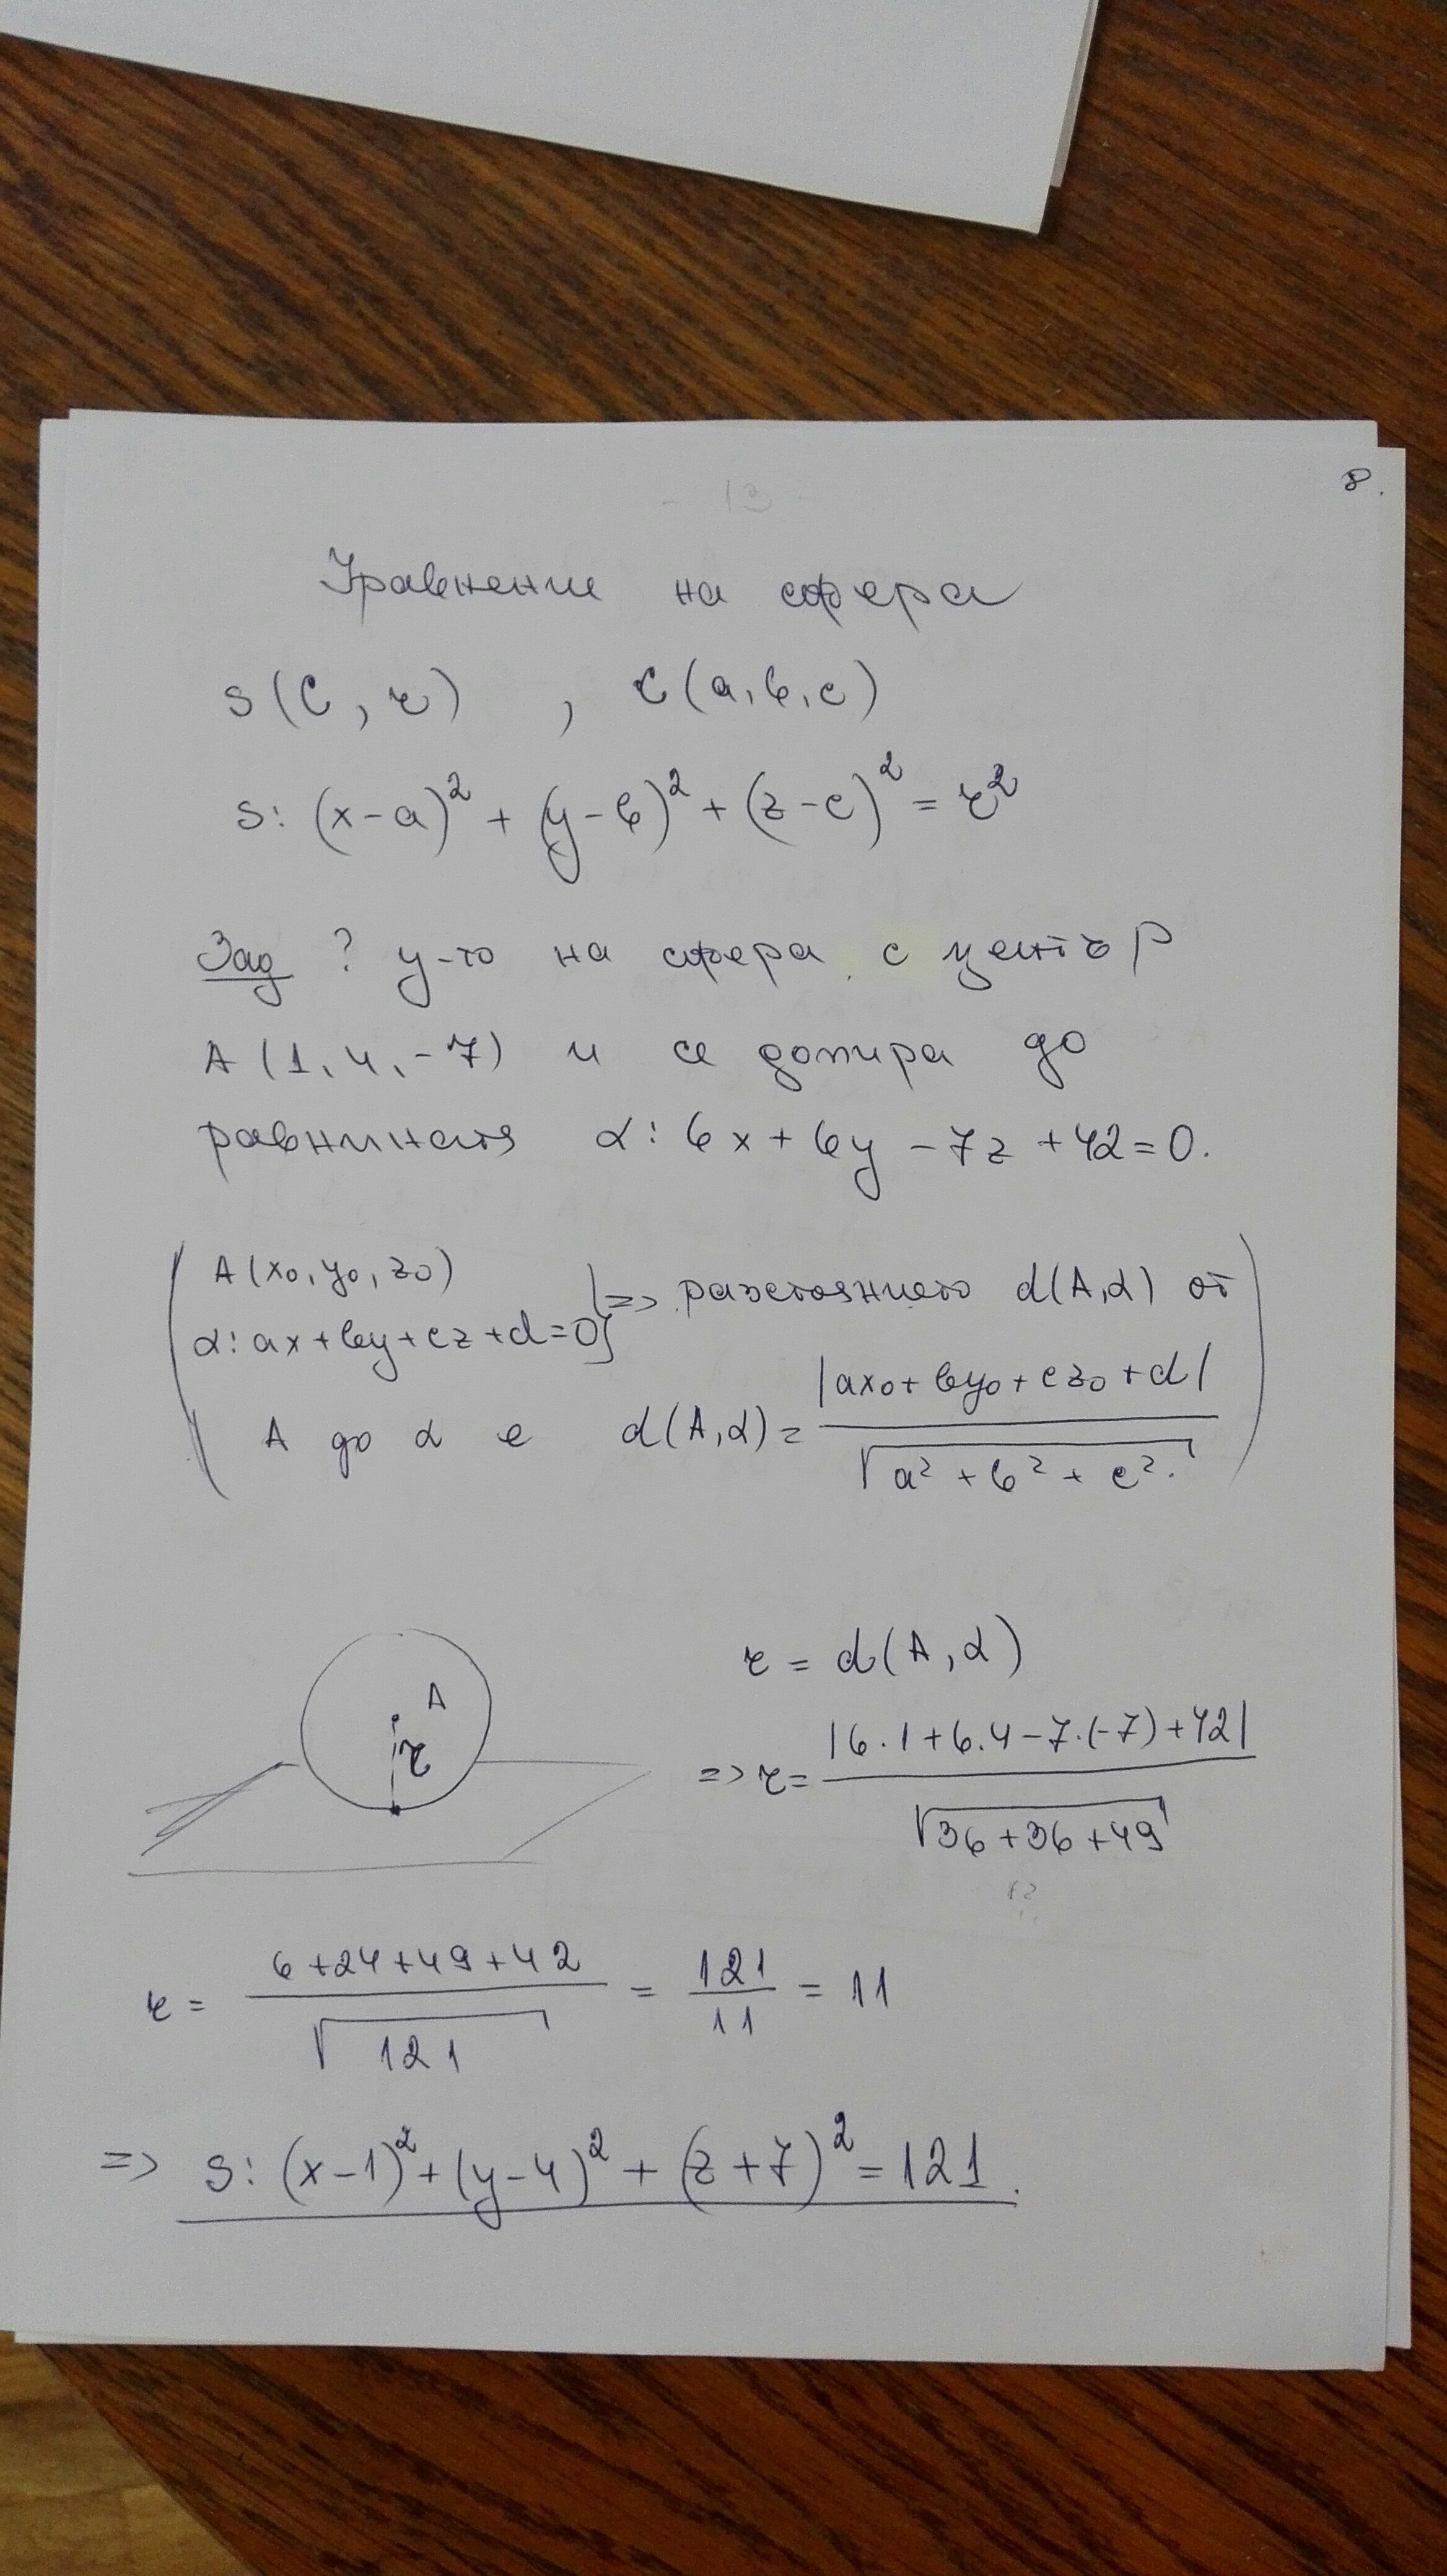 8.
Уравнение на сфера
S(C, r) , C(a, b, c)
S: (x-a)² + (y-b)² + (z-c)² = r²
Зад ? у-то на сфера с център
A(1, 4, -7) и се допира до
равнината α: 6x + 6y - 7z + 42 = 0.
A(x₀, y₀, z₀)
α: ax + by + cz + d = 0} => разстоянието d(A, α) от
A до α е d(A, α) = |ax₀ + by₀ + cz₀ + d| / √(a² + b² + c²)
r = d(A, α)
A
r
=> r = |6.1 + 6.4 - 7.(-7) + 42| / √(36 + 36 + 49)
r = (6 + 24 + 49 + 42) / √121 = 121/11 = 11
=> S: (x-1)² + (y-4)² + (z+7)² = 121.